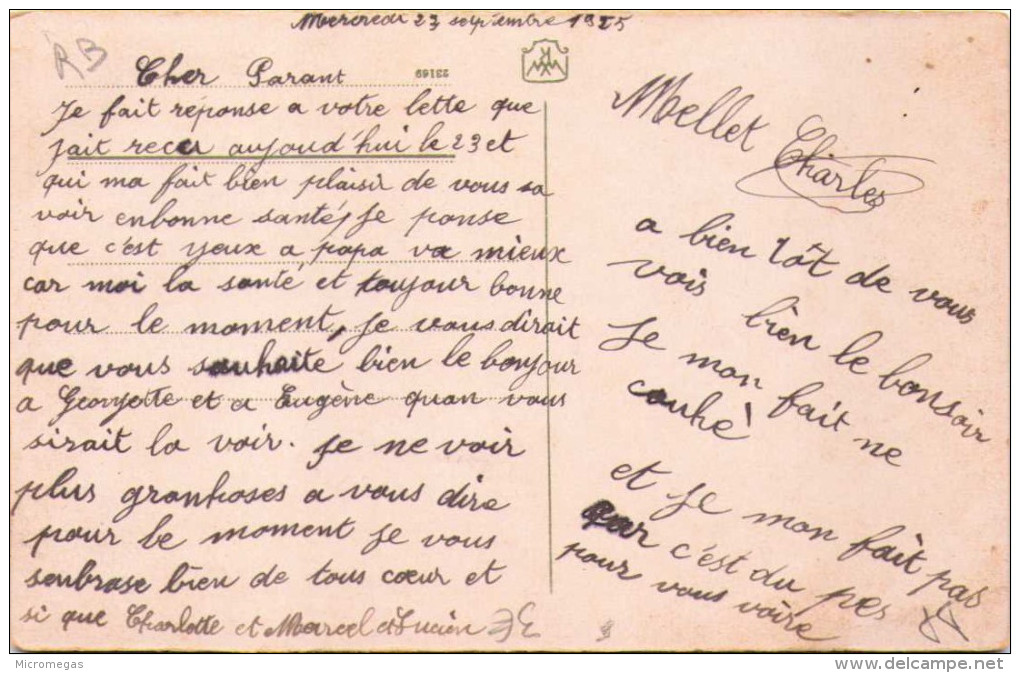 Mercredi 23 septembre 1925
RB
Cher Parant
23169
Je fait réponse a votre lette que
jait recu aujoud'hui le 23 et
qui ma fait bien plaisir de vous sa
voir enbonne santé, Je ponse
que c'est yeux a papa va mieux
car moi la santé et toujour bonne
pour le moment, Je vous dirait
que vous souhaite bien le bonjour
a Georjette et a Eugène quan vous
sirait la voir. Je ne voir
plus granhoses a vous dire
pour le moment Je vous
senbrase bien de tous cœur et
si que Charlotte et Marcel et Lucien
Mellet Charles
a bien tôt de vous
vois bien le bonsoir
Je mon fait ne
couhè
et Je mon fait pas
car c'est du pes
pour vous voire
Micromegas
delcampe.net